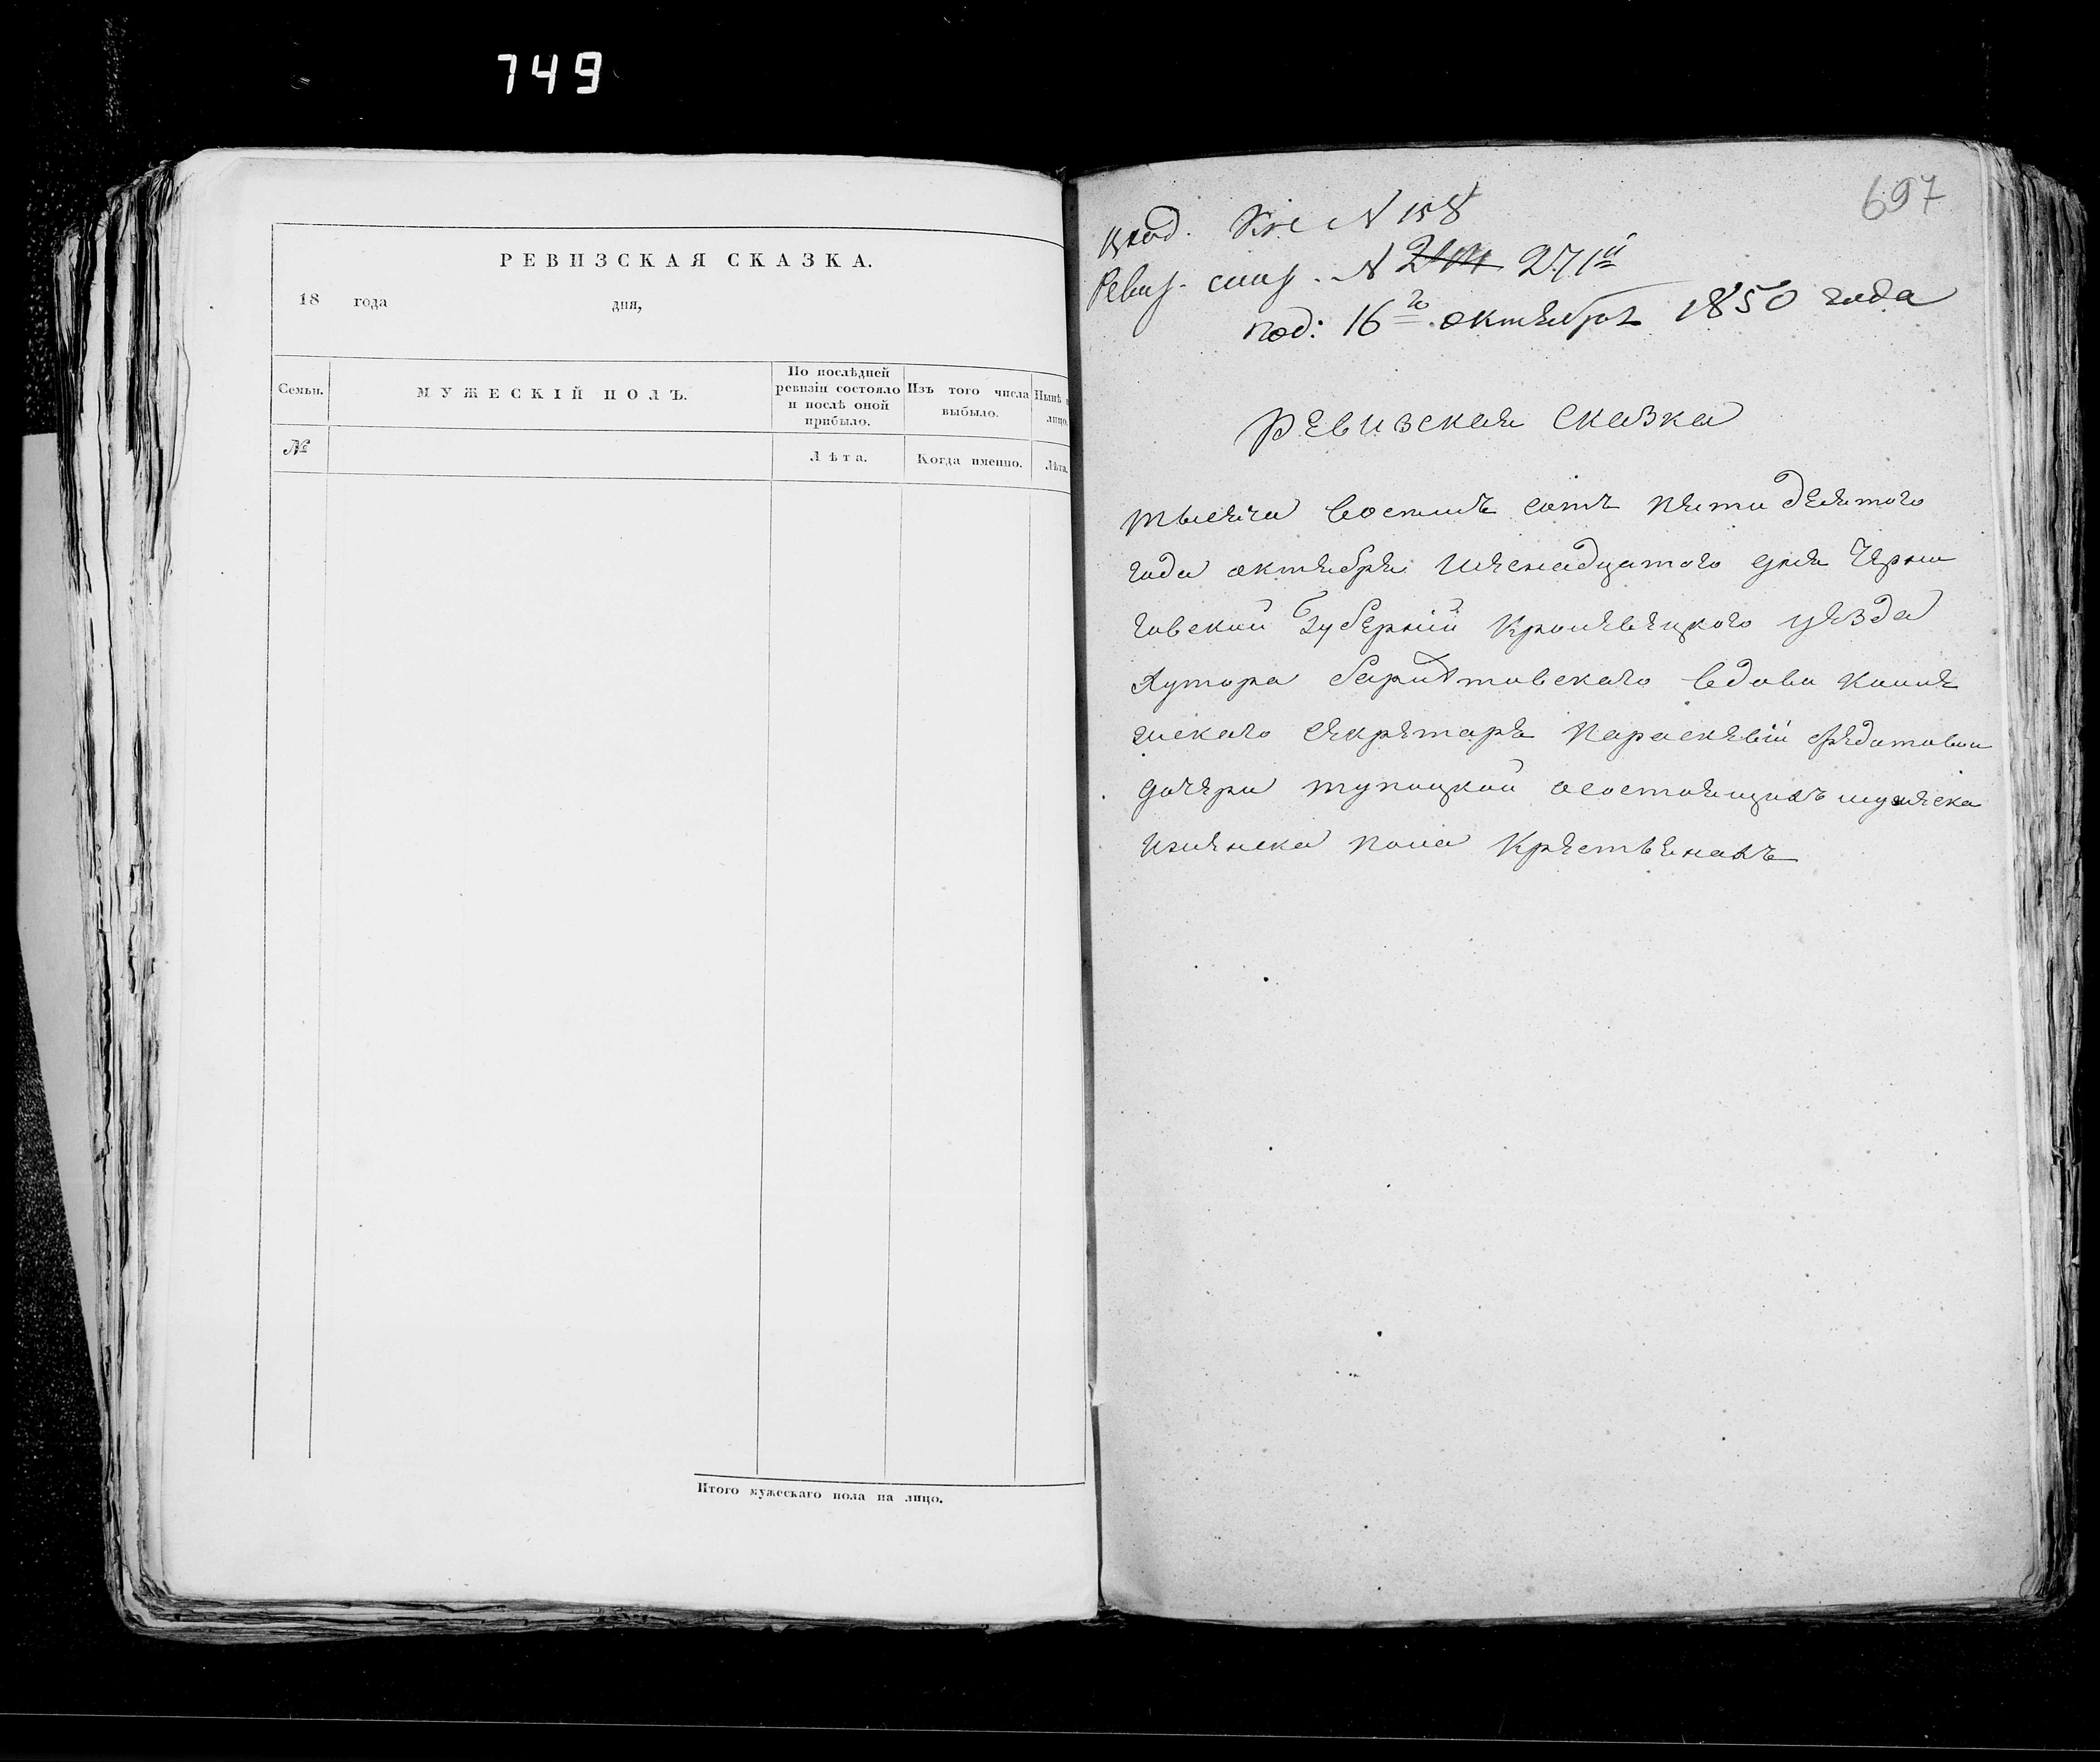 749
РЕВИЗСКАЯ СКАЗКА.
18 года дня,
Семьи.
МУЖЕСКІЙ ПОЛЪ.
По послѣдней ревизіи состояло и послѣ оной прибыло.
Изъ того числа выбыло.
Нынѣ
лицо.
№
Лѣта.
Когда именно.
Лѣта.
Итого мужескаго пола на лицо.
697
N 158
Ревиз. N 271й
под: 16го октября 1850 года
Ревизская сказка
тысяча восемъ сотъ пятидесятого
года октября шеснадцатого дня Черни
говской Губерніи Кролевецкого уезда
Хутора вдови колле
зскаго секретаря Параскевіи Федотовой
дочери тупицкой осостоящихъ мужеска
иженска пола Крестьянахъ